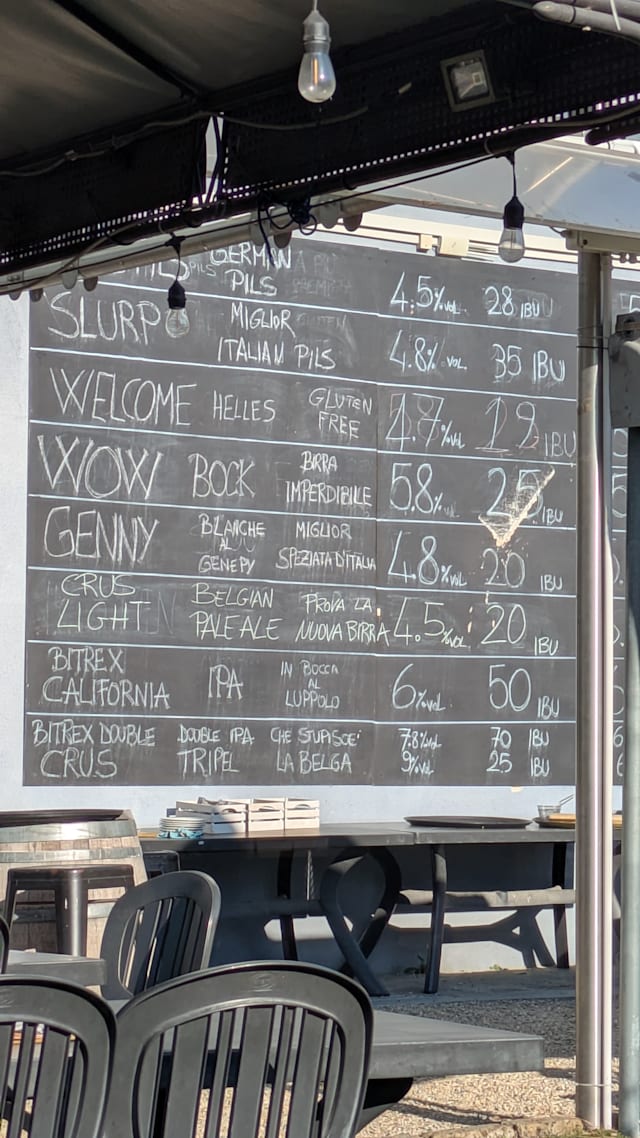 PILS GERMAN PILS 4.5% VOL 28 IBU
SLURP MIGLIOR ITALIAN PILS 4.8% VOL. 35 IBU
WELCOME HELLES GLUTEN FREE 4.7% VOL IBU
WOW BOCK BIRRA IMPERDIBILE 5.8% 25 IBU
GENNY BLANCHE AL GENEPY MIGLIOR SPEZIATA D'ITALIA 4.8% VOL 20 IBU
CRUS LIGHT BELGIAN PALE ALE PROVA LA NUOVA BIRRA 4.5% VOL 20 IBU
BITREX CALIFORNIA IPA IN BOCCA AL LUPPOLO 6% VOL 50 IBU
BITREX DOUBLE DOUBLE IPA CHE STUPISCE' 7.8% VOL 70 IBU
CRUS TRIPEL LA BELGA 9% VOL 25 IBU